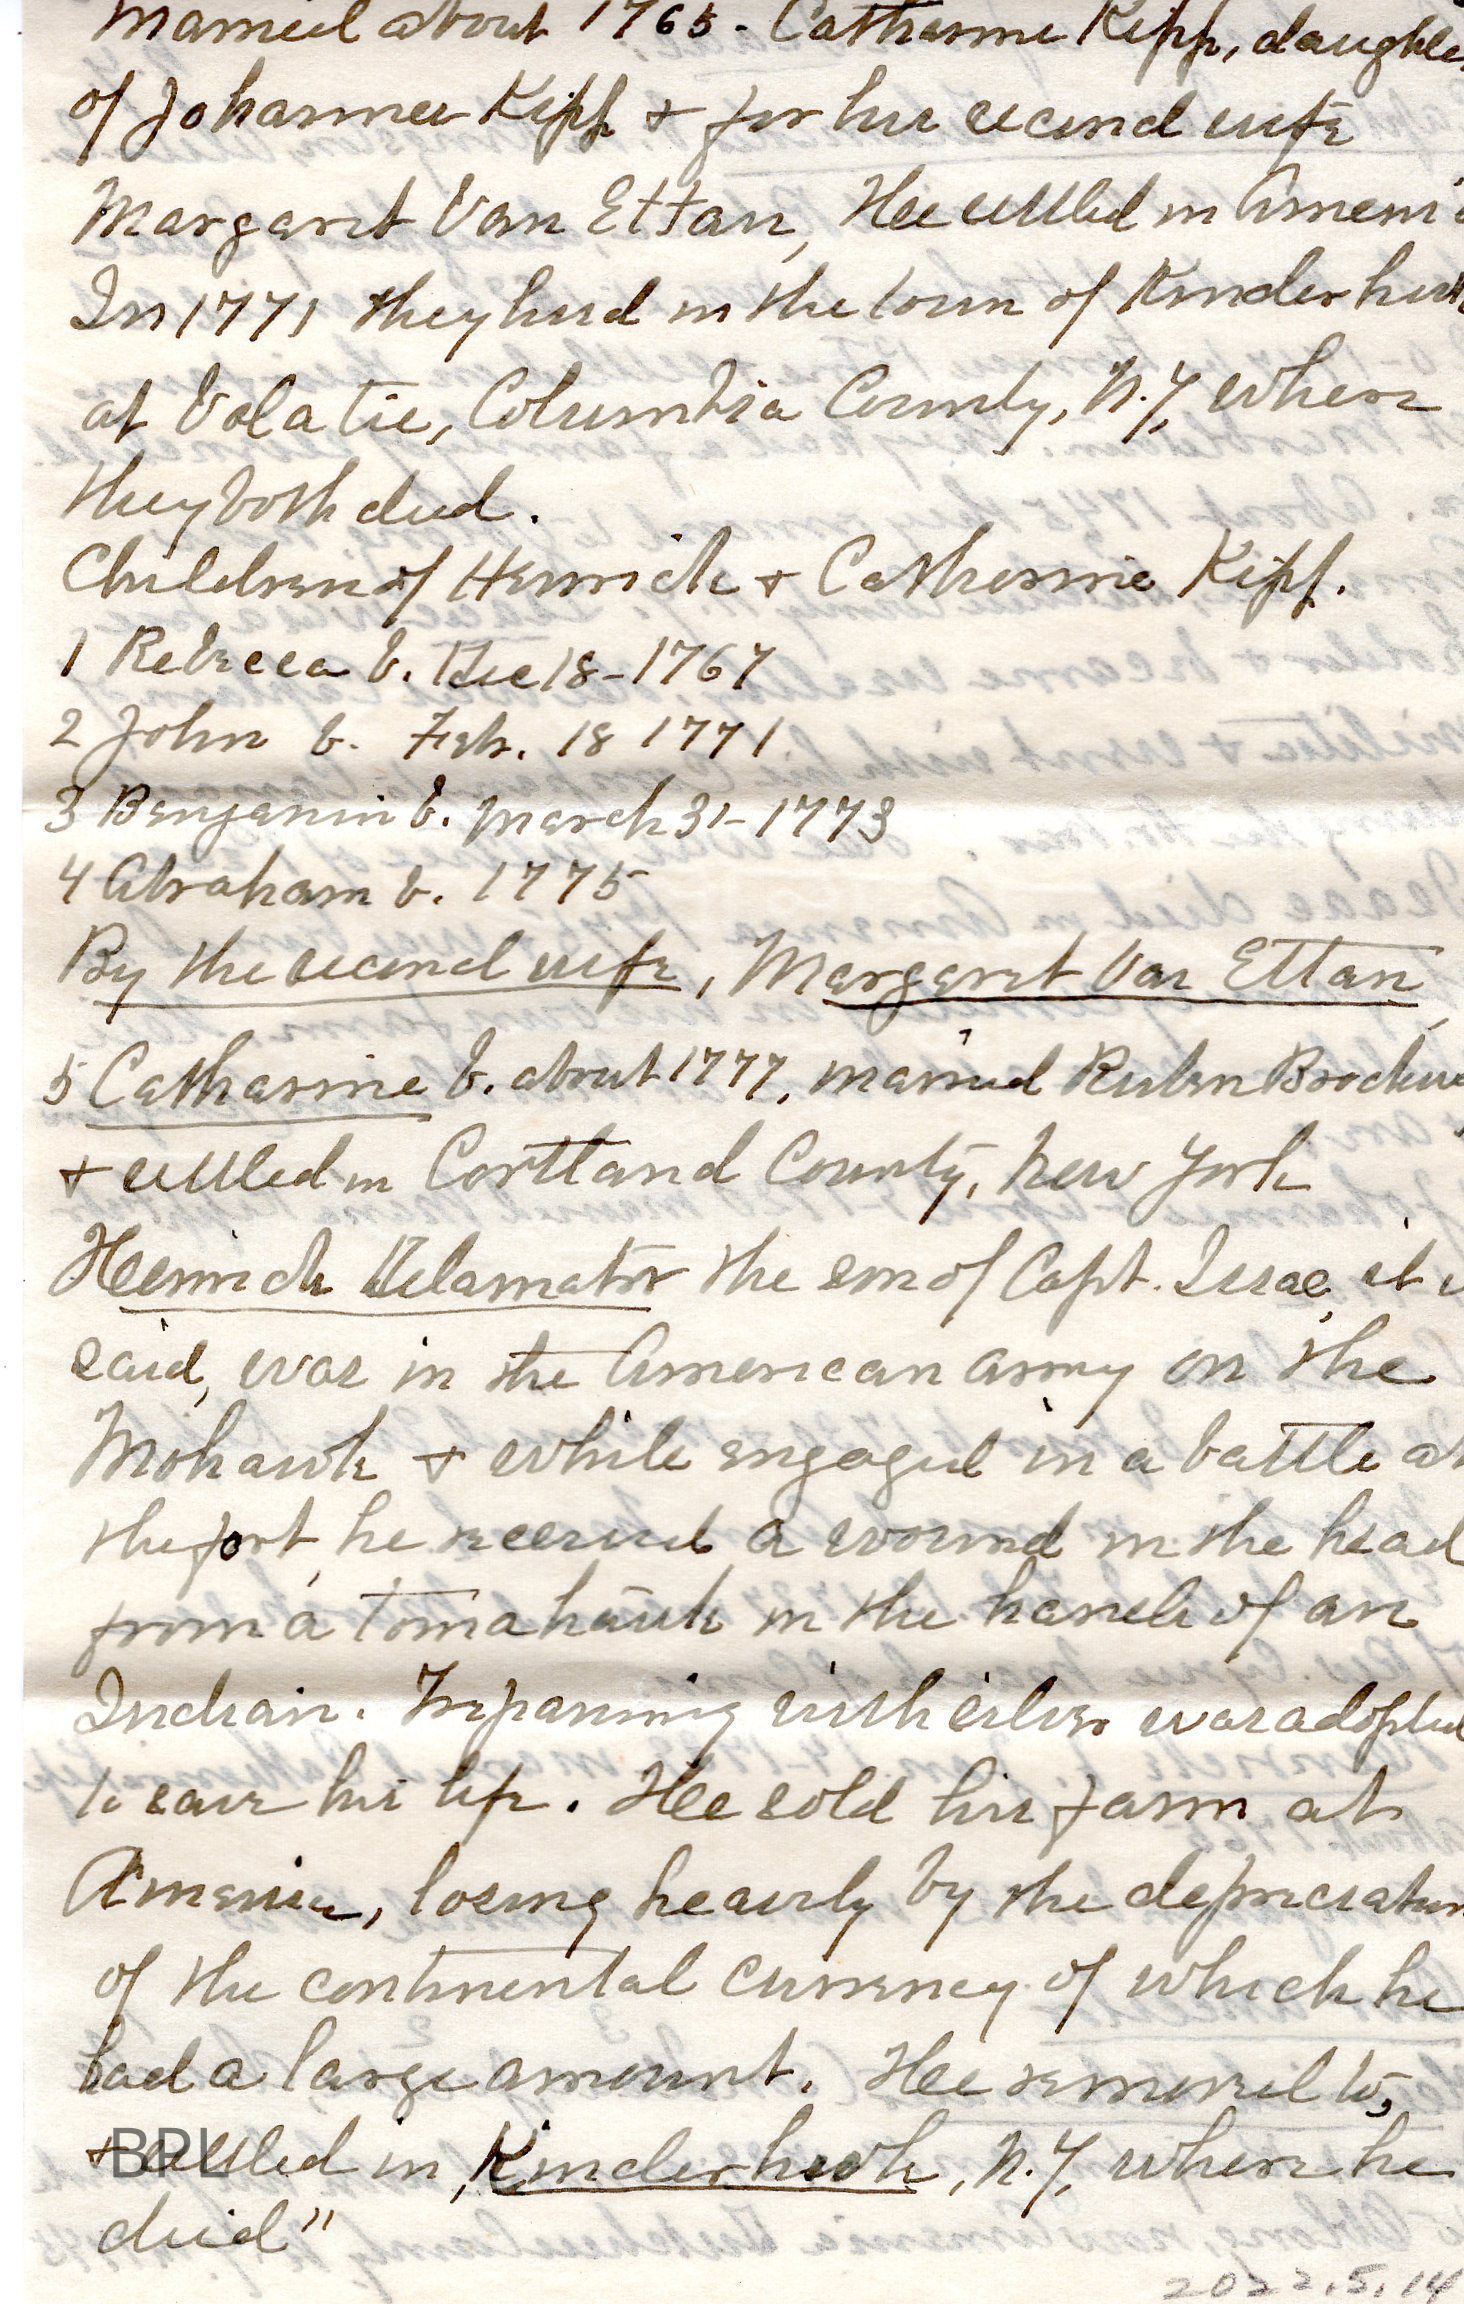 Married about 1765. Catharine Kipp, daughte
of Johannes Kipp & for his second wife
Margaret Van Ettan, He settled in Ameni
In 1771 they lived in the town of Kinderhook
at Valatie, Columbia County, N.Y, where
they both died.
Children of Henrick & Catherine Kipp.
1 Rebecca b. Dec 18-1767
2 John b. Feb. 18 1771
3 Benjamin b. March 31-1773
4 Abraham b. 1775
By the second wife, Margaret Van Ettan,
5 Catharine b. about 1777, married Ruben Brockw
& settled in Cortland County, New York
Henrick Delamater the son of Capt. Isaac, it i
said, was in the American army on the
Mohawk & while engaged in a battle at
the fort, he received a wound in the head
from a tomahauk in the hands of an
Indian. Trepanning with silver was adopted
to save his life. He sold his farm at
Amenia, losing heavily by the depreciation
of the continental currency of which he
had a large amount. He removed to,
& settled in, Kinderhook, N.Y, where he
died"
BPL
2022.5.14